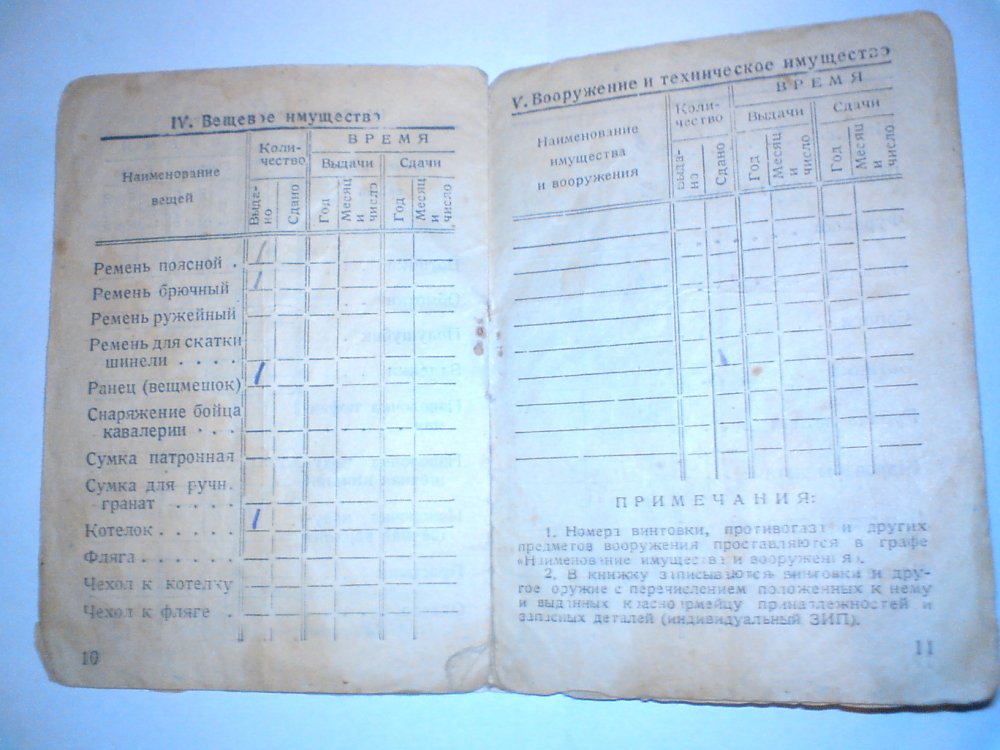 IV. Вещевое имущество
Наименование вещей
Количество
ВРЕМЯ
Выдачи
Сдачи
Выдано
Сдано
Год
Месяц и число
Год
Месяц и число
Ремень поясной . 1
Ремень брючный 1
Ремень ружейный
Ремень для скатки
шинели . . . .
Ранец (вещмешок) 1
Снаряжение бойца
кавалерии . . .
Сумка патронная
Сумка для ручн.
гранат . . . .
Котелок . . . . . 1
Фляга . . . . . .
Чехол к котелку
Чехол к фляге .
10
V. Вооружение и техническое имущество
Наименование
имущества
и вооружения
Коли-
чество
ВРЕМЯ
Выдачи
Сдачи
Выдано
Сдано
Год
Месяц и число
Год
Месяц и число
ПРИМЕЧАНИЯ:
1. Номера винтовки, противогаза и других
предметов вооружения проставляются в графе
«Наименование имущества и вооружения».
2. В книжку записываются винтовки и дру-
гое оружие с перечислением положенных к нему
и выданных красноармейцу принадлежностей и
запасных деталей (индивидуальный ЗИП).
11